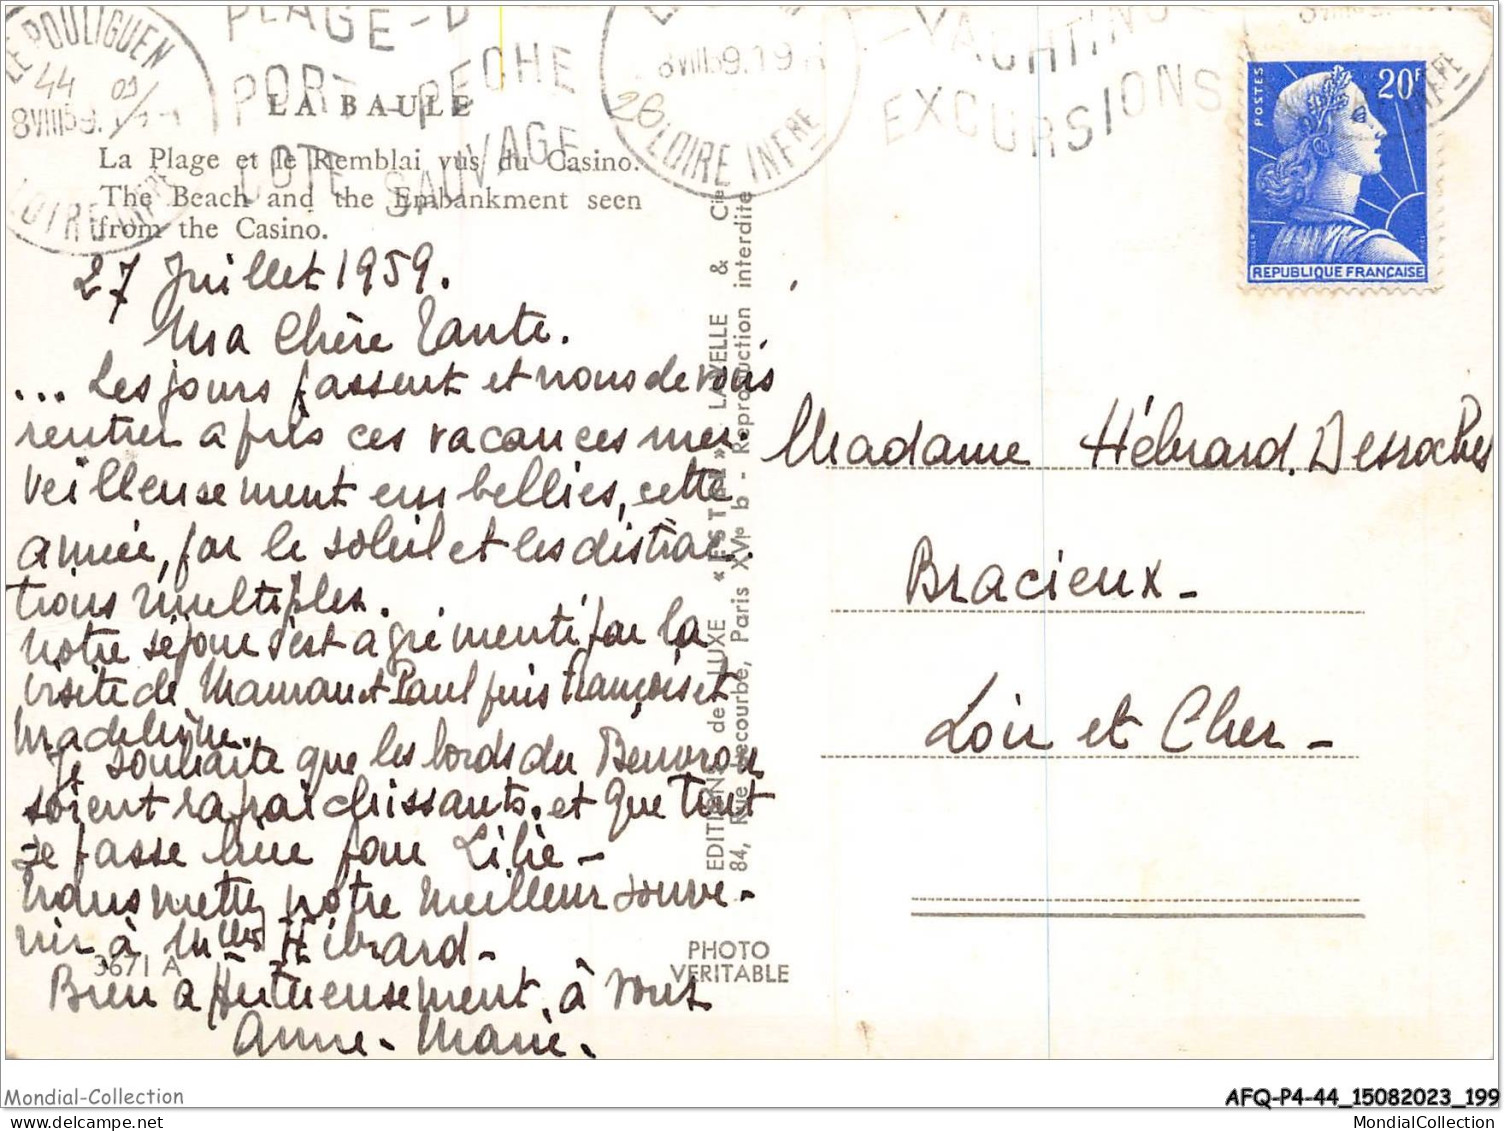 LE POULIGUEN
44
LOIRE INFRE
PLAGE - D
PORT - PECHE
COTE SAUVAGE
8 VIII 59. 19
LOIRE INFRE
- YACHTING -
EXCURSIONS
POSTES
20F
REPUBLIQUE FRANÇAISE
LA BAULE
La Plage et le Remblai vus du Casino.
The Beach and the Embankment seen
from the Casino.
27 Juillet 1959.
Ma Chère Tante.
... Les jours passent et nous devons
rentrer après ces vacances mer-
veilleusement embellies, cette
année, par le soleil et les distrac-
tions multiples.
Notre séjour s'est agrémenté par la
visite de Maman et Paul puis François et
Madeleine.
Je souhaite que les bords du Beuvron
soient rafraichissants. et que tout
se passe bien pour Lilie -
Transmettez notre meilleur souve-
nir à Mlles Hébrard -
Bien affectueusement à vous
Anne-Marie.
3671 A
EDITIONS de LUXE « ESTEL » LAVELLE & Cie
84, Rue Lecourbe, Paris XVe b - Reproduction interdite
PHOTO
VERITABLE
Madame Hébrard. Desroches
Bracieux -
Loir et Cher -
Mondial-Collection
AFQ-P4-44_15082023_199
MondialCollection